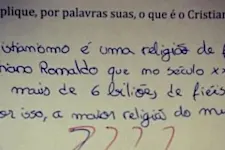 plique, por palavras suas, o que é o Cristian
istianismo é uma religião de f
iano Ronaldo que no século xx
mais de 6 biliões de fiéis
or isso, a maior religião do mu
????